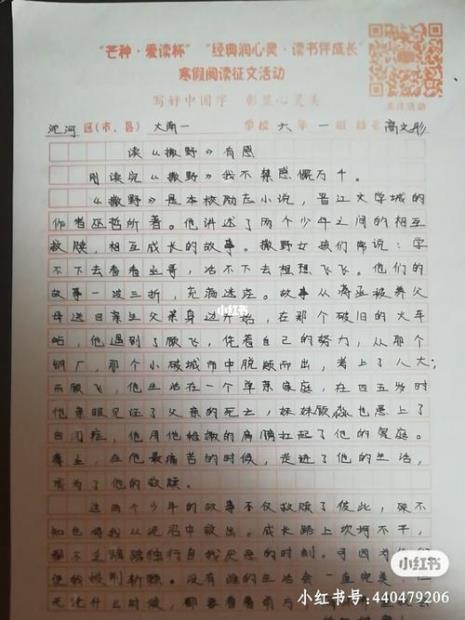 “芒种·爱读杯”“经典润心灵·读书伴成长”
寒假阅读征文活动
写好中国字 彰显心灵美
沈河区(市、县) 大南一 学校 六年一班 姓名 高文彤
读《撒野》有感
刚读完《撒野》我不禁思偶万千。
《撒野》是本校励志小说，晋江文学城的
作者巫哲所著。他讲述了两个少年之间的相互
救赎，相互成长的故事。撒野女孩们常说：学
不下去看看丞哥，活不下去想想飞飞。他们的
故事一波三折，充满迷茫。故事从蒋丞被养父
母送回亲生父亲身边开始，在那个破旧的火车
站，他遇到了顾飞，凭着自己的努力，从那个
钢厂，那个小破城市中脱颖而出，考上了人大；
而顾飞，他生活在一个单亲家庭，在四五岁时
他亲眼见证了父亲的死亡，妹妹顾淼也患上了
自闭症，他用他稚嫩的肩膀扛起了他的家庭。
蒋丞，在他最痛苦的时候，走进了他的生活，
成为了他的救赎。
这两个少年的故事不仅救赎了彼此，
知也将我从泥沼中救出。成长路上坎坷不平，
独行自我厌恶的时刻。可因为
便的披荆斩棘。没有谁的生活会一直完美，但
无论什么时候，都要看着前方
小红书
小红书
小红书号:440479206